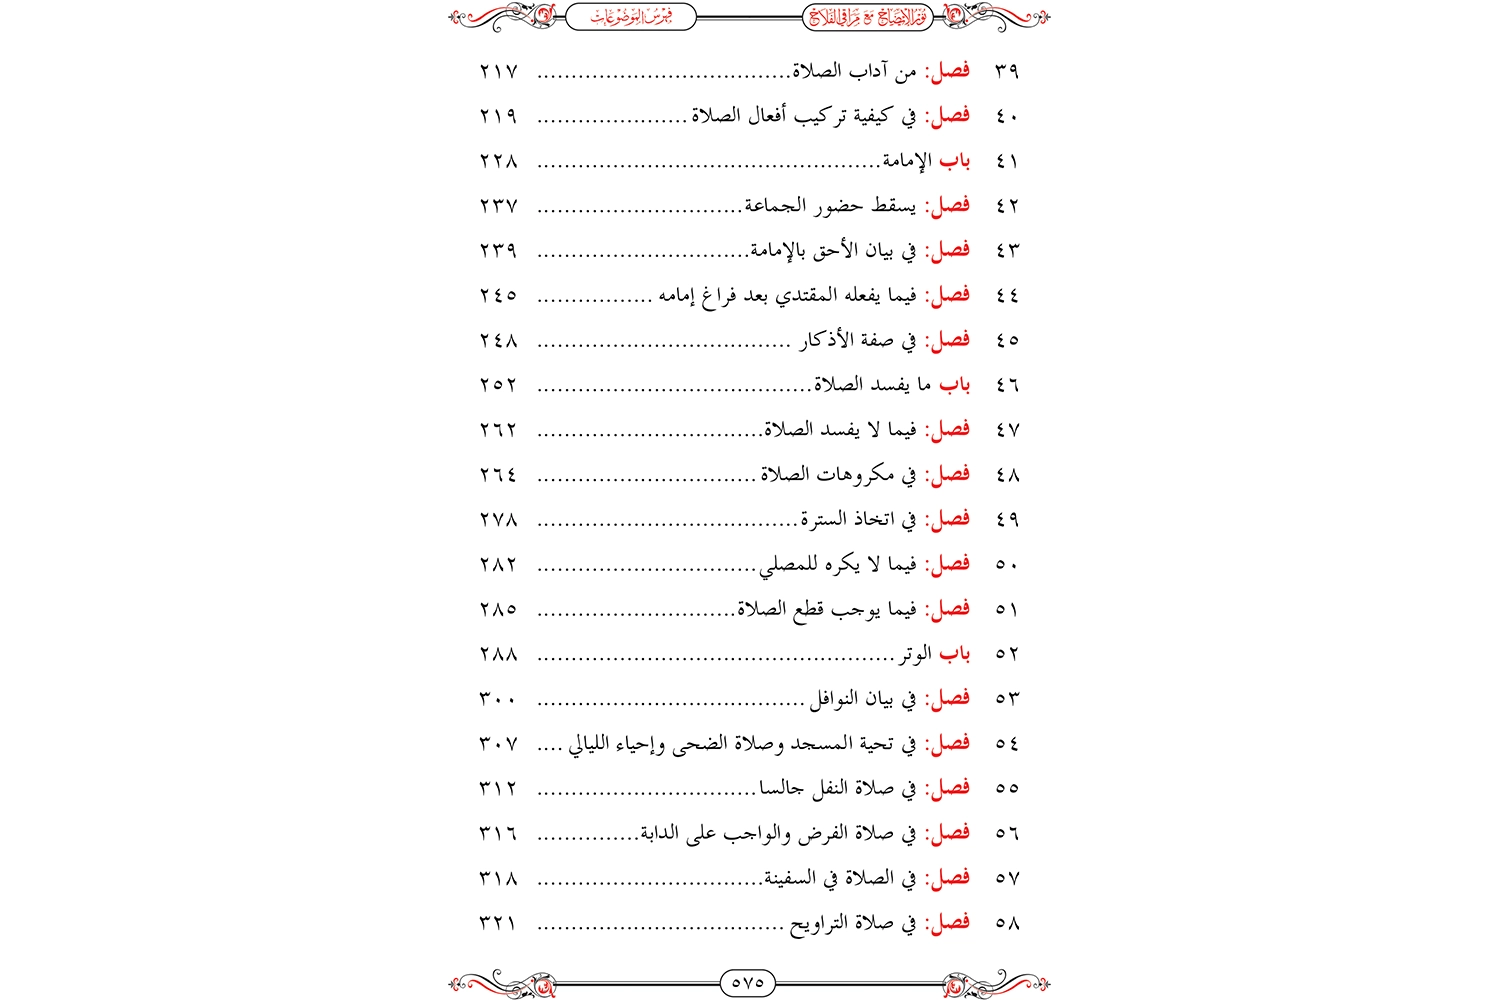 نور الإيضاح مع مراقي الفلاح فهرس الموضوعات
٣٩ فصل: من آداب الصلاة ..................................... ٢١٧
٤٠ فصل: في كيفية تركيب أفعال الصلاة ...................... ٢١٩
٤١ باب الإمامة .................................................. ٢٢٨
٤٢ فصل: يسقط حضور الجماعة .............................. ٢٣٧
٤٣ فصل: في بيان الأحق بالإمامة ............................... ٢٣٩
٤٤ فصل: فيما يفعله المقتدي بعد فراغ إمامه ................. ٢٤٥
٤٥ فصل: في صفة الأذكار ..................................... ٢٤٨
٤٦ باب ما يفسد الصلاة ........................................ ٢٥٢
٤٧ فصل: فيما لا يفسد الصلاة ................................. ٢٦٢
٤٨ فصل: في مكروهات الصلاة ................................ ٢٦٤
٤٩ فصل: في اتخاذ السترة ...................................... ٢٧٨
٥٠ فصل: فيما لا يكره للمصلي ................................ ٢٨٢
٥١ فصل: فيما يوجب قطع الصلاة ............................. ٢٨٥
٥٢ باب الوتر .................................................... ٢٨٨
٥٣ فصل: في بيان النوافل ....................................... ٣٠٠
٥٤ فصل: في تحية المسجد وصلاة الضحى وإحياء الليالي .... ٣٠٧
٥٥ فصل: في صلاة النفل جالسا ................................ ٣١٢
٥٦ فصل: في صلاة الفرض والواجب على الدابة ............... ٣١٦
٥٧ فصل: في الصلاة في السفينة ................................. ٣١٨
٥٨ فصل: في صلاة التراويح .................................... ٣٢١
٥٧٥